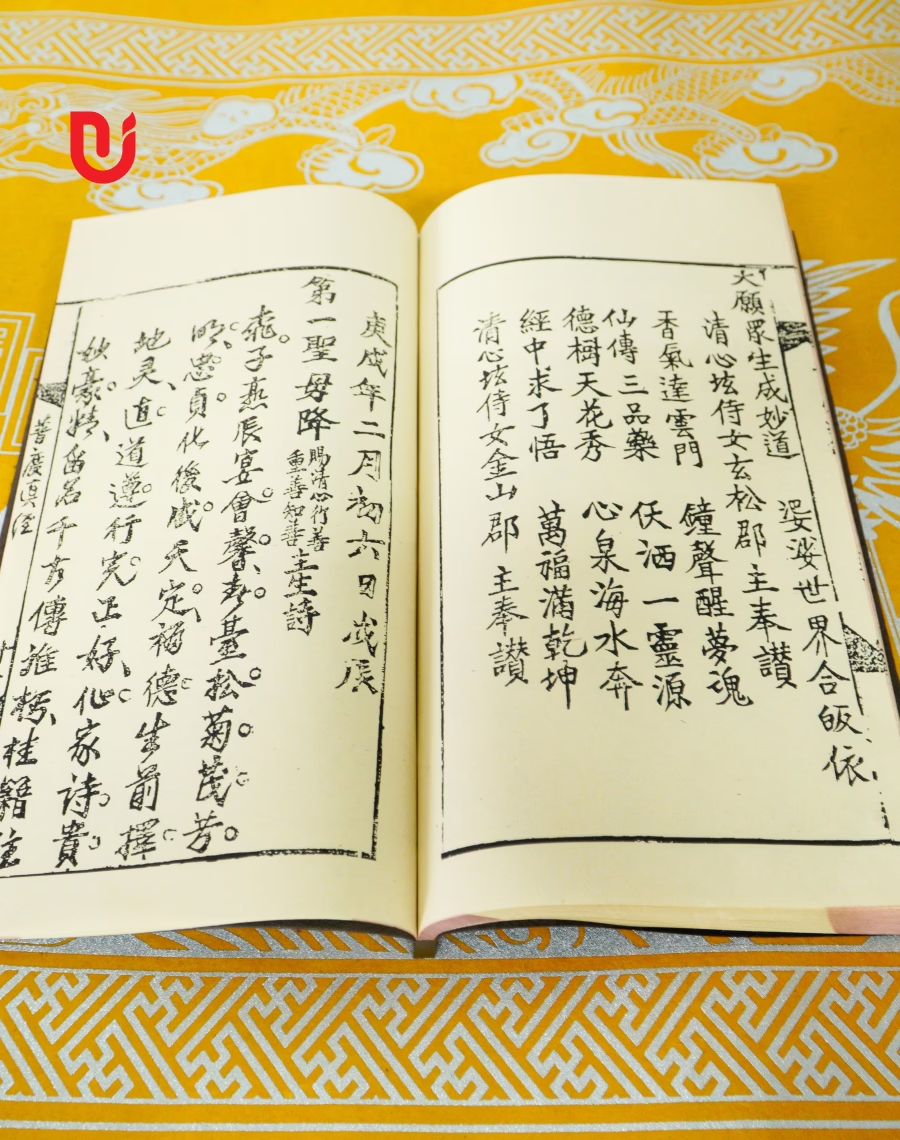 大願眾生成妙道 娑婆世界合皈依
清心垓侍女玄松郡主奉讃
香氣達雲門 鐘聲醒夢魂
仙傳三品藥 伏洒一靈源
德樹天花秀 心泉海水奔
經中求了悟 萬福滿乾坤
清心垓侍女金山郡主奉讃
庚戌年二月初六日戌辰
第一聖母降 賜清心衍善 重善知善 主生詩
子燕辰宴會馨春臺松菊茂芳
明貞化後成天定福德生前擇
地灵直道遵行完正好化家诗貴
妙豪精留名千傳誰桂籍
普度真经